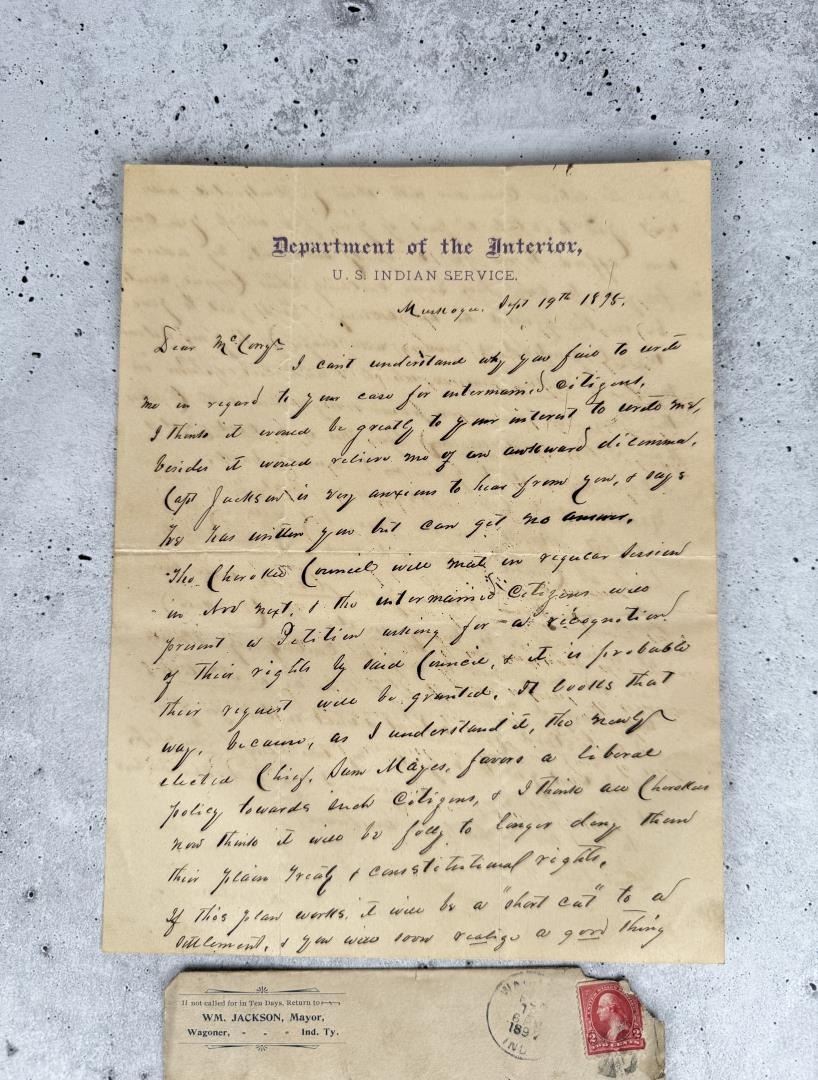 Department of the Interior,
U. S. INDIAN SERVICE,
Muskogee. Sept 19th 1895.
Dear
I can't understand why you fail to write
me in regard to your case for intermarried citizens.
I think it would be greatly to your interest to write me,
besides it would relieve me of an awkward dilemma.
Capt Jackson is very anxious to hear from you, & says
he has written you but can get no answer.
The Cherokee Council will meet in regular session
in Nov next, & the intermarried citizens will
present a Petition asking for a recognition
of their rights by said Council, & it is probable
their request will be granted. It looks that
way, because, as I understand it, the newly
elected Chief, Sam Mayes, favors a liberal
policy towards such citizens, & I think all Cherokees
now think it will be folly to longer deny them
their plain treaty & constitutional rights.
If this plan works, it will be a "short cut" to a
settlement, & you will soon realize a good thing
If not called for in Ten Days, Return to
WM. JACKSON, Mayor,
Wagoner, - - - Ind. Ty.
189
IND
2 2
TWO CENTS